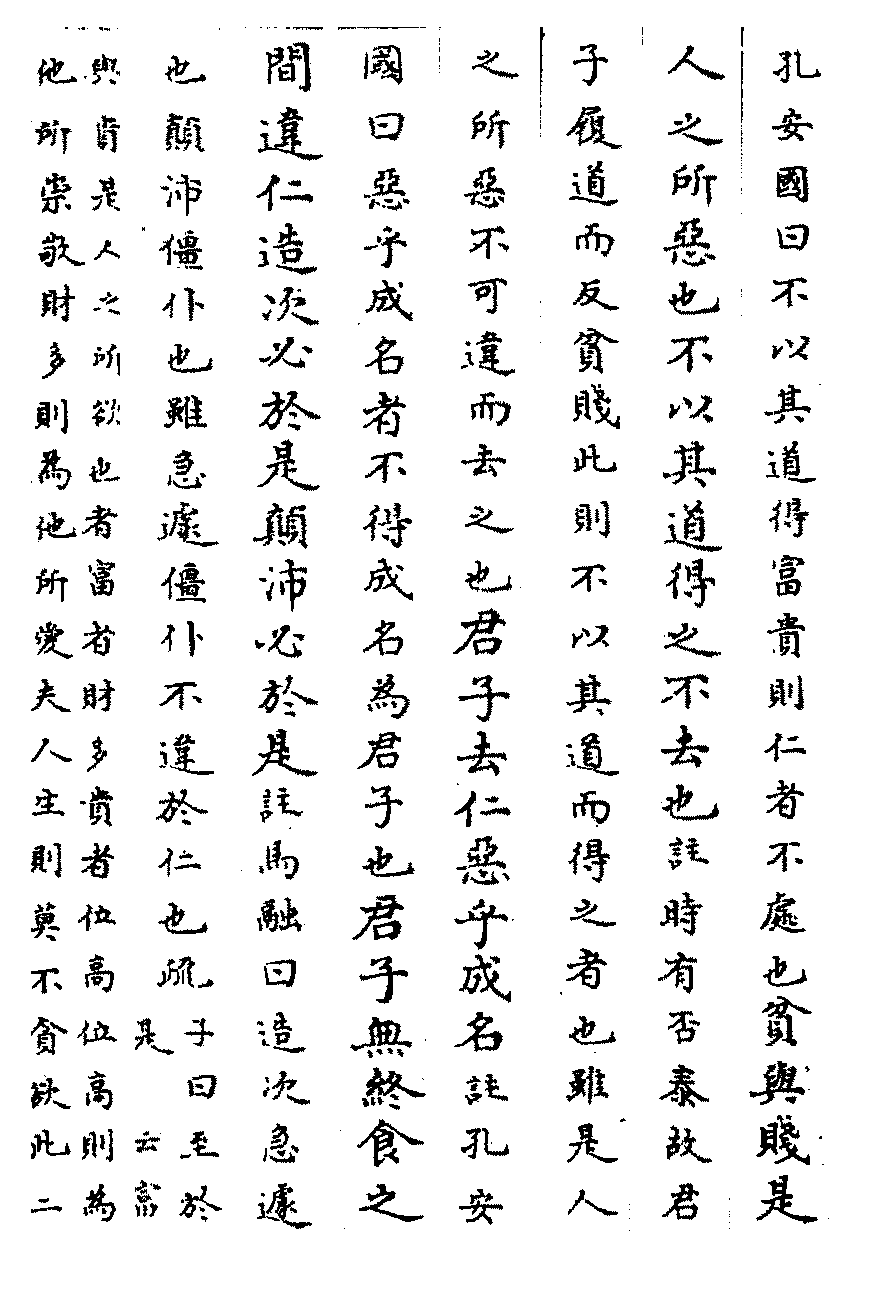 孔安國曰不以其道得富貴則仁者不處也貧與賤是
人之所惡也不以其道得之不去也註時有否泰故君
子履道而反貧賤此則不以其道而得之者也雖是人
之所惡不可違而去之也君子去仁惡乎成名註孔安
國曰惡乎成名者不得成名為君子也君子無終食之
間違仁造次必於是顛沛必於是註馬融曰造次急遽
也顛沛僵仆也雖急遽僵仆不違於仁也疏子曰至於
是 云富
與貴是人之所欲也者富者財多貴者位高位高則為
他所崇敬財多則為他所愛夫人生則莫不貪欲此二